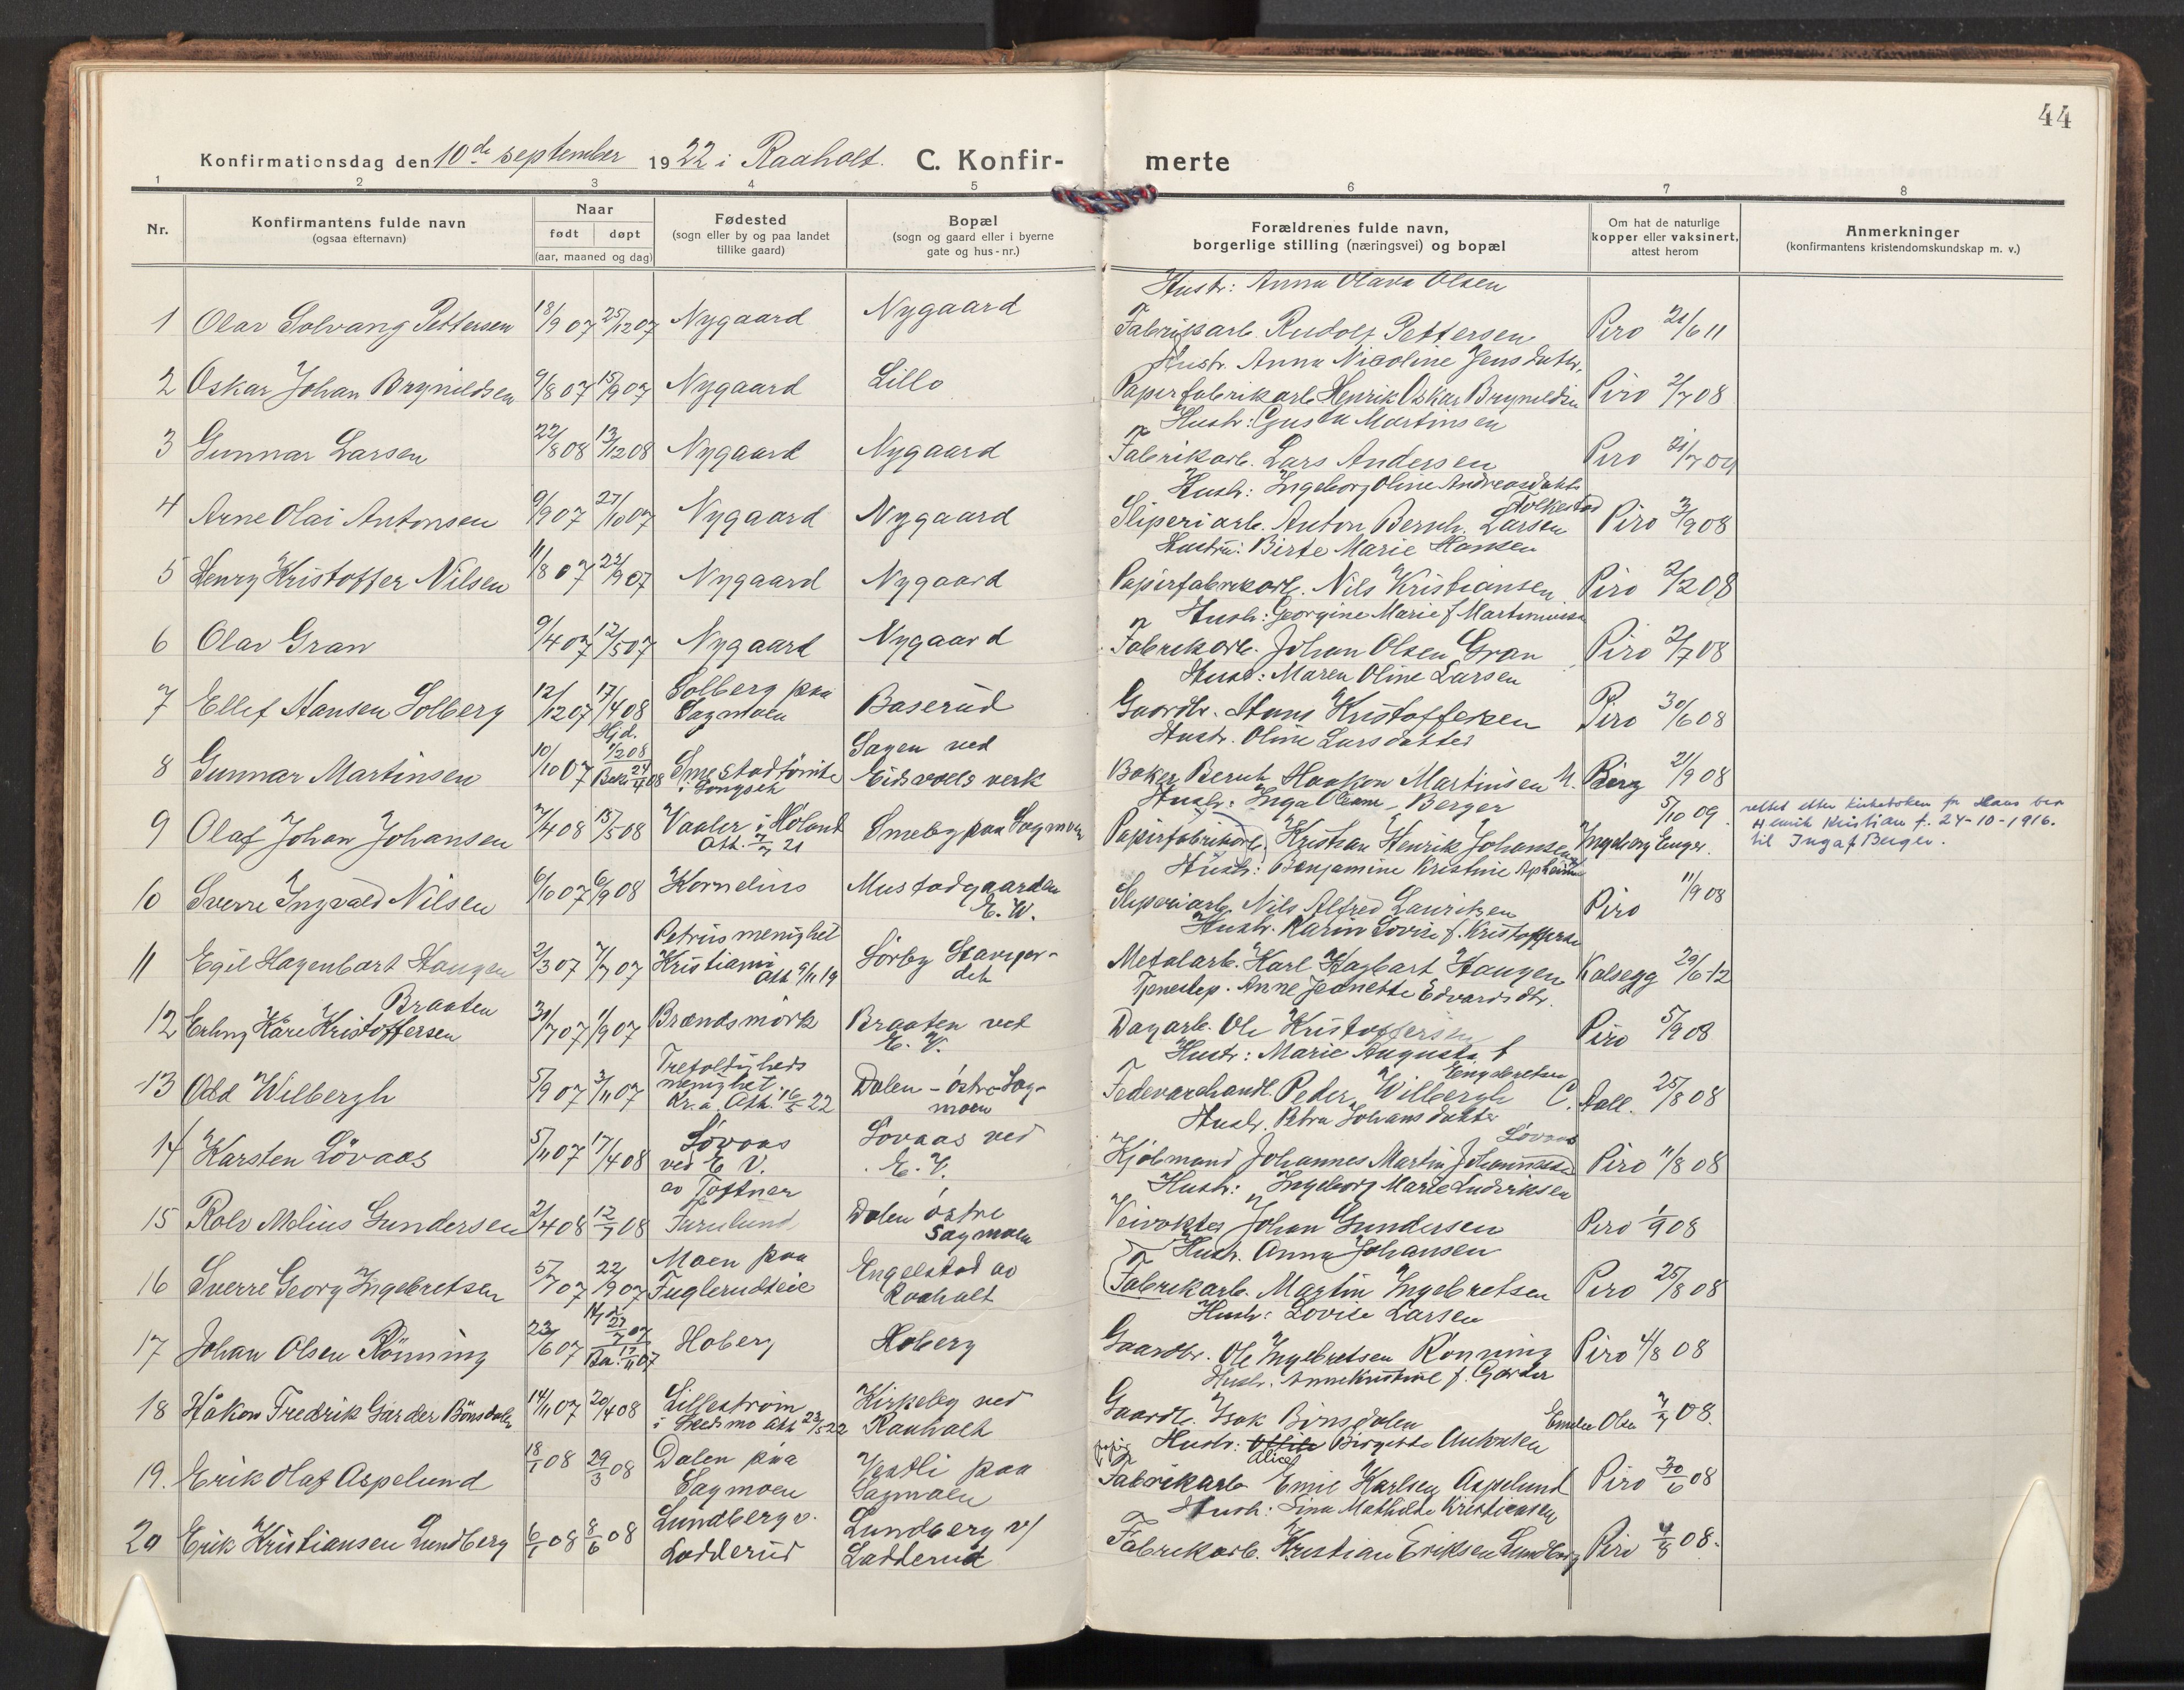 44
Konfirmationsdag den 10de september 1922 i Raaholt. C. Konfirmerte
1 2 3 4 5 6 7 8
Nr.
Konfirmantens fulde navn
(ogsaa efternavn)
Naar
født døpt
(aar, maaned og dag)
Fødested
(sogn eller by og paa landet
tillike gaard)
Bopæl
(sogn og gaard eller i byerne
gate og hus-nr.)
Forældrenes fulde navn,
borgerlige stilling (næringsvei) og bopæl
Om hat de naturlige
kopper eller vaksinert,
attest herom
Anmerkninger
(konfirmantens kristendomskundskap m. v.)
Hustr: Anna Olava Olsen
1 Olav Solvang Pettersen 18/9 07 25/12 07 Nygaard Nygaard Fabrikarb. Rudolf Pettersen Piro 21/6 11
Hustr. Anna Nicoline Jensdatter
2 Oskar Johan Brynildsen 9/8 07 15/9 07 Nygaard Lillo Papirfabrikarb. Henrik Oskar Brynildsen Piro 2/7 08
Hustr: Gusta Martinsen
3 Gunnar Larsen 22/8 08 13/12 08 Nygaard Nygaard Fabrikarb. Lars Andersen Piro 21/7 09
Hustr: Ingeborg Oline Andreasdatter
Folkestad
4 Arne Olai Antonsen 9/9 07 27/10 07 Nygaard Nygaard Sliperiarb. Anton Bernh. Larsen Piro 3/9 08
Hustru: Birte Marie Hansen
5 Henry Kristoffer Nilsen 11/8 07 22/9 07 Nygaard Nygaard Papirfabrikarb. Nils Kristiansen Piro 2/2 08
Hustr: Georgine Marie f. Martiniussen
6 Olav Gran 9/4 07 12/5 07 Nygaard Nygaard Fabrikarb. Johan Olsen Gran Piro 2/7 08
Hustr: Maren Oline Larsen
7 Ellef Hansen Solberg 12/12 07 17/4 08 Solberg paa
Sagmoen Baserud Gaardbr. Hans Kristoffersen Piro 30/6 08
Hustr. Oline Larsdatter
8 Gunnar Martinsen 10/10 07 Hjd. 1/2 08
Bekr. 24/4 08 Smestadtomte
i Longset Sagen ved
Eidsvolls verk Baker Bernh. Haakon Martinsen M. Berg 21/9 08
Hustr: Inga Berger
9 Olaf Johan Johansen 7/4 08 15/5 08 Vaaler i Høland
Att. 7/7 21 Smeby paa Sagmoen Papirfabrikarb. Kristian Henrik Johansen 5/10 09
Ingeborg Enger.
rettet etter kirkeboken for Hans bror
Henrik Kristian f. 24-10-1916.
til Inga f. Berger.
Hustr: Benjamine Kristine
10 Sverre Ingvald Nilsen 6/10 07 6/9 08 Kornelius Mustadgaarden
E. V. Sliperiarb. Nils Alfred Lauritzen Piro 11/9 08
Hustr. Karin Lovise f. Kristoffersen
11 Egil Hagenbart Haugen 2/3 07 7/7 07 Petrus menighet
Kristiania
Att 5/11 19 Sørby Stavger-
det Metalarb. Karl Hagbart Haugen Kolsegg 29/6 12
Tjenestep. Anne Jeanette Edvardsdtr.
Braaten
12 Erling Kåre Kristoffersen 31/7 07 1/9 07 Brændsmork Braaten ved
E. V. Dagarb. Ole Kristoffersen Piro 5/9 08
Hustr: Marie Augusta f.
Engebretsen
13 Odd Wilbergh 5/9 07 3/11 07 Trefoldigheds
menighet
Kr.a. Att. 16/5 22 Dalen – østre Sag-
moen Fedevarehandl. Peder Wilbergh C. Aall. 25/8 08
Hustr. Petra Johansdatter
Løvaas
14 Karsten Løvaas 5/11 07 17/4 08 Løvaas
ved E V. Løvaas ved
E. V. Kjøbmand Johannes Martin Johannessen Piro 11/8 08
Hustr: Ingeborg Marie Ludviksen
15 Rolv Melius Gundersen 2/4 08 12/7 08 av Toftner
Furulund Dalen østre
Sagmoen Veivokter Johan Gundersen Piro 1/9 08
Hustr. Anna Johansen
16 Sverre Georg Ingebretsen 5/7 07 22/9 07 Moen paa
Fuglerudteie Engelstad av
Raaholt Fabrikarb. Martin Ingebretsen Piro 25/8 08
Hustr: Lovise Larsen
17 Johan Olsen Rønning 23/6 07 Hjd. 27/7 07
Be. 17/11 07 Hoberg Hoberg Gaardbr. Ole Ingebretsen Rønning Piro 4/8 08
Hustr. Anne Kristine f. Garder
18 Håkon Fredrik Garder Bønsdalen 14/11 07 20/4 08 Lillestrøm
i Skedsmo Att 23/5 22 Kirkeby ved
Raaholt Gaardb. Isak Bønsdalen Emilie Olsen 7/7 08.
Hustr: Birgitte Antonsen
Alice
19. Erik Olaf Aspelund 18/1 08 29/3 08 Dalen paa
Sagmoen Vestli paa
Sagmoen papir
Fabrikarb Emil Karlsen Aspelund Piro 30/6 08
Hustr: Lina Mathilde Kristiansen
20 Erik Kristiansen Lundberg 6/1 08 8/6 08 Lundberg v.
Ladderud Lundberg v/
Ladderud Fabrikarb. Kristian Eriksen Lundberg Piro 4/8 08.